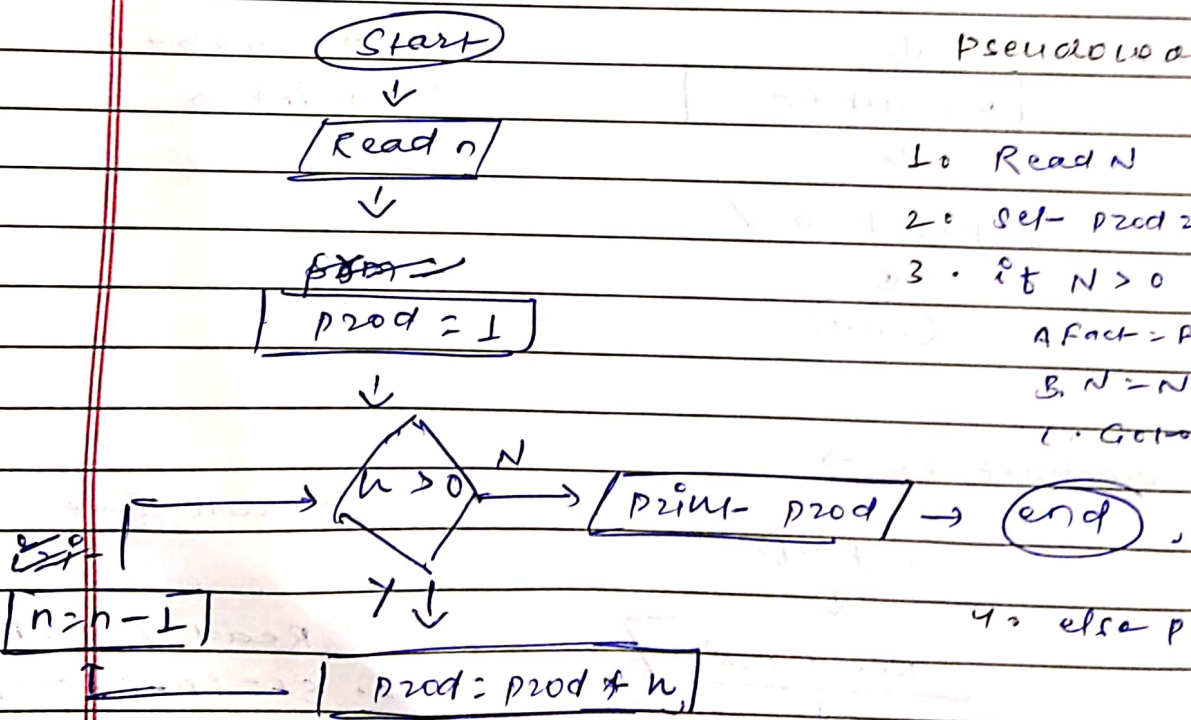 Start
Read n
prod = 1
n > 0
N
print prod
end
Y
prod = prod * n
n = n - 1
1. Read N
2. Set prod =
3. if N > 0
A Fact = P
B. N = N
C. Goto
4. else p